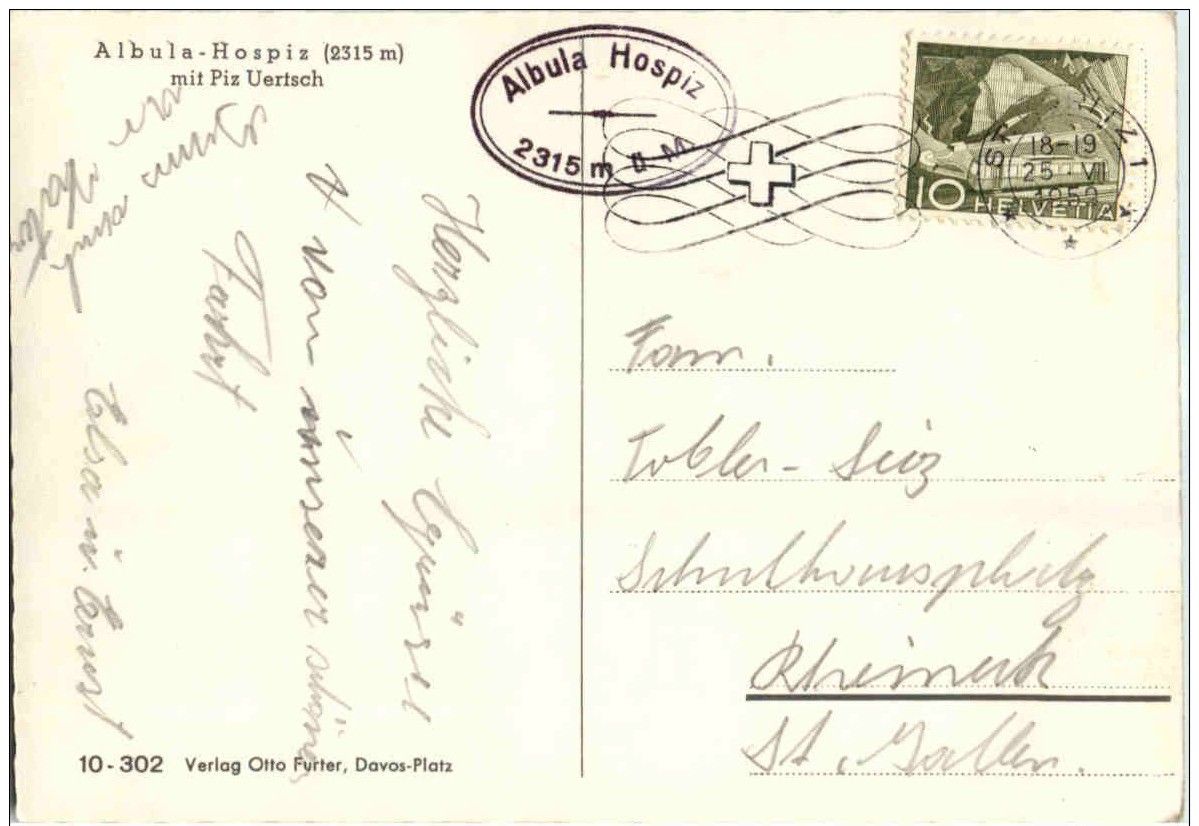 Albula-Hospiz (2315 m)
mit Piz Uertsch
Albula Hospiz
2315 m ü M
18-19
25. VII
10 HELVETIA
Herzliche Grüsse
von unserer schönen
Fahrt
Elsa u. Ernst
Fam.
Tobler-
Schulhausplatz
Rheineck
St. Gallen.
10-302 Verlag Otto Furter, Davos-Platz